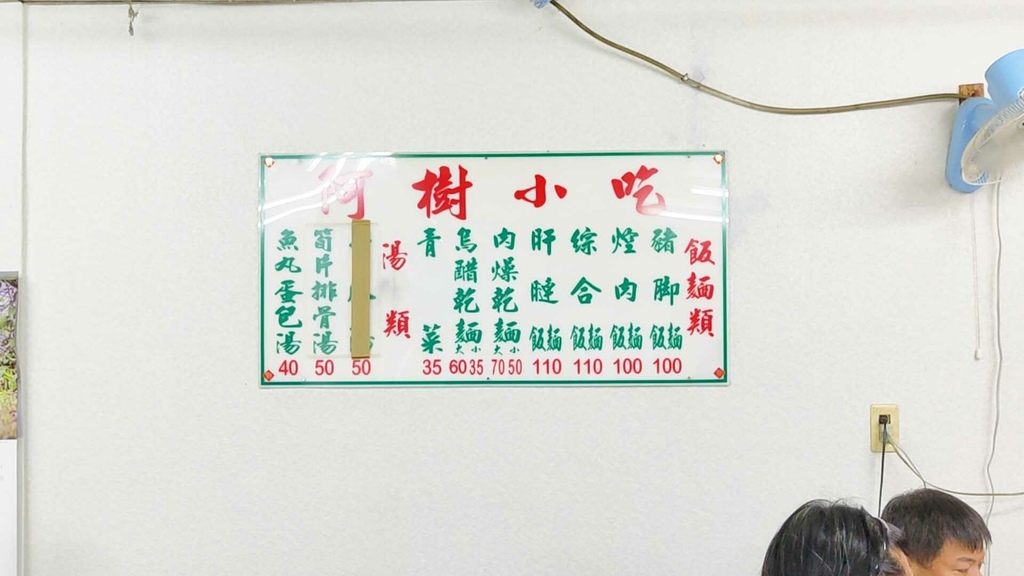 阿樹小吃
飯麵類
豬脚飯麵 100
焢肉飯麵 100
綜合飯麵 110
肝腱飯麵 110
肉燥乾麵 大 小 70 50
烏醋乾麵 大 小 60 35
青菜 35
湯類
50
筍片排骨湯 50
魚丸蛋包湯 40